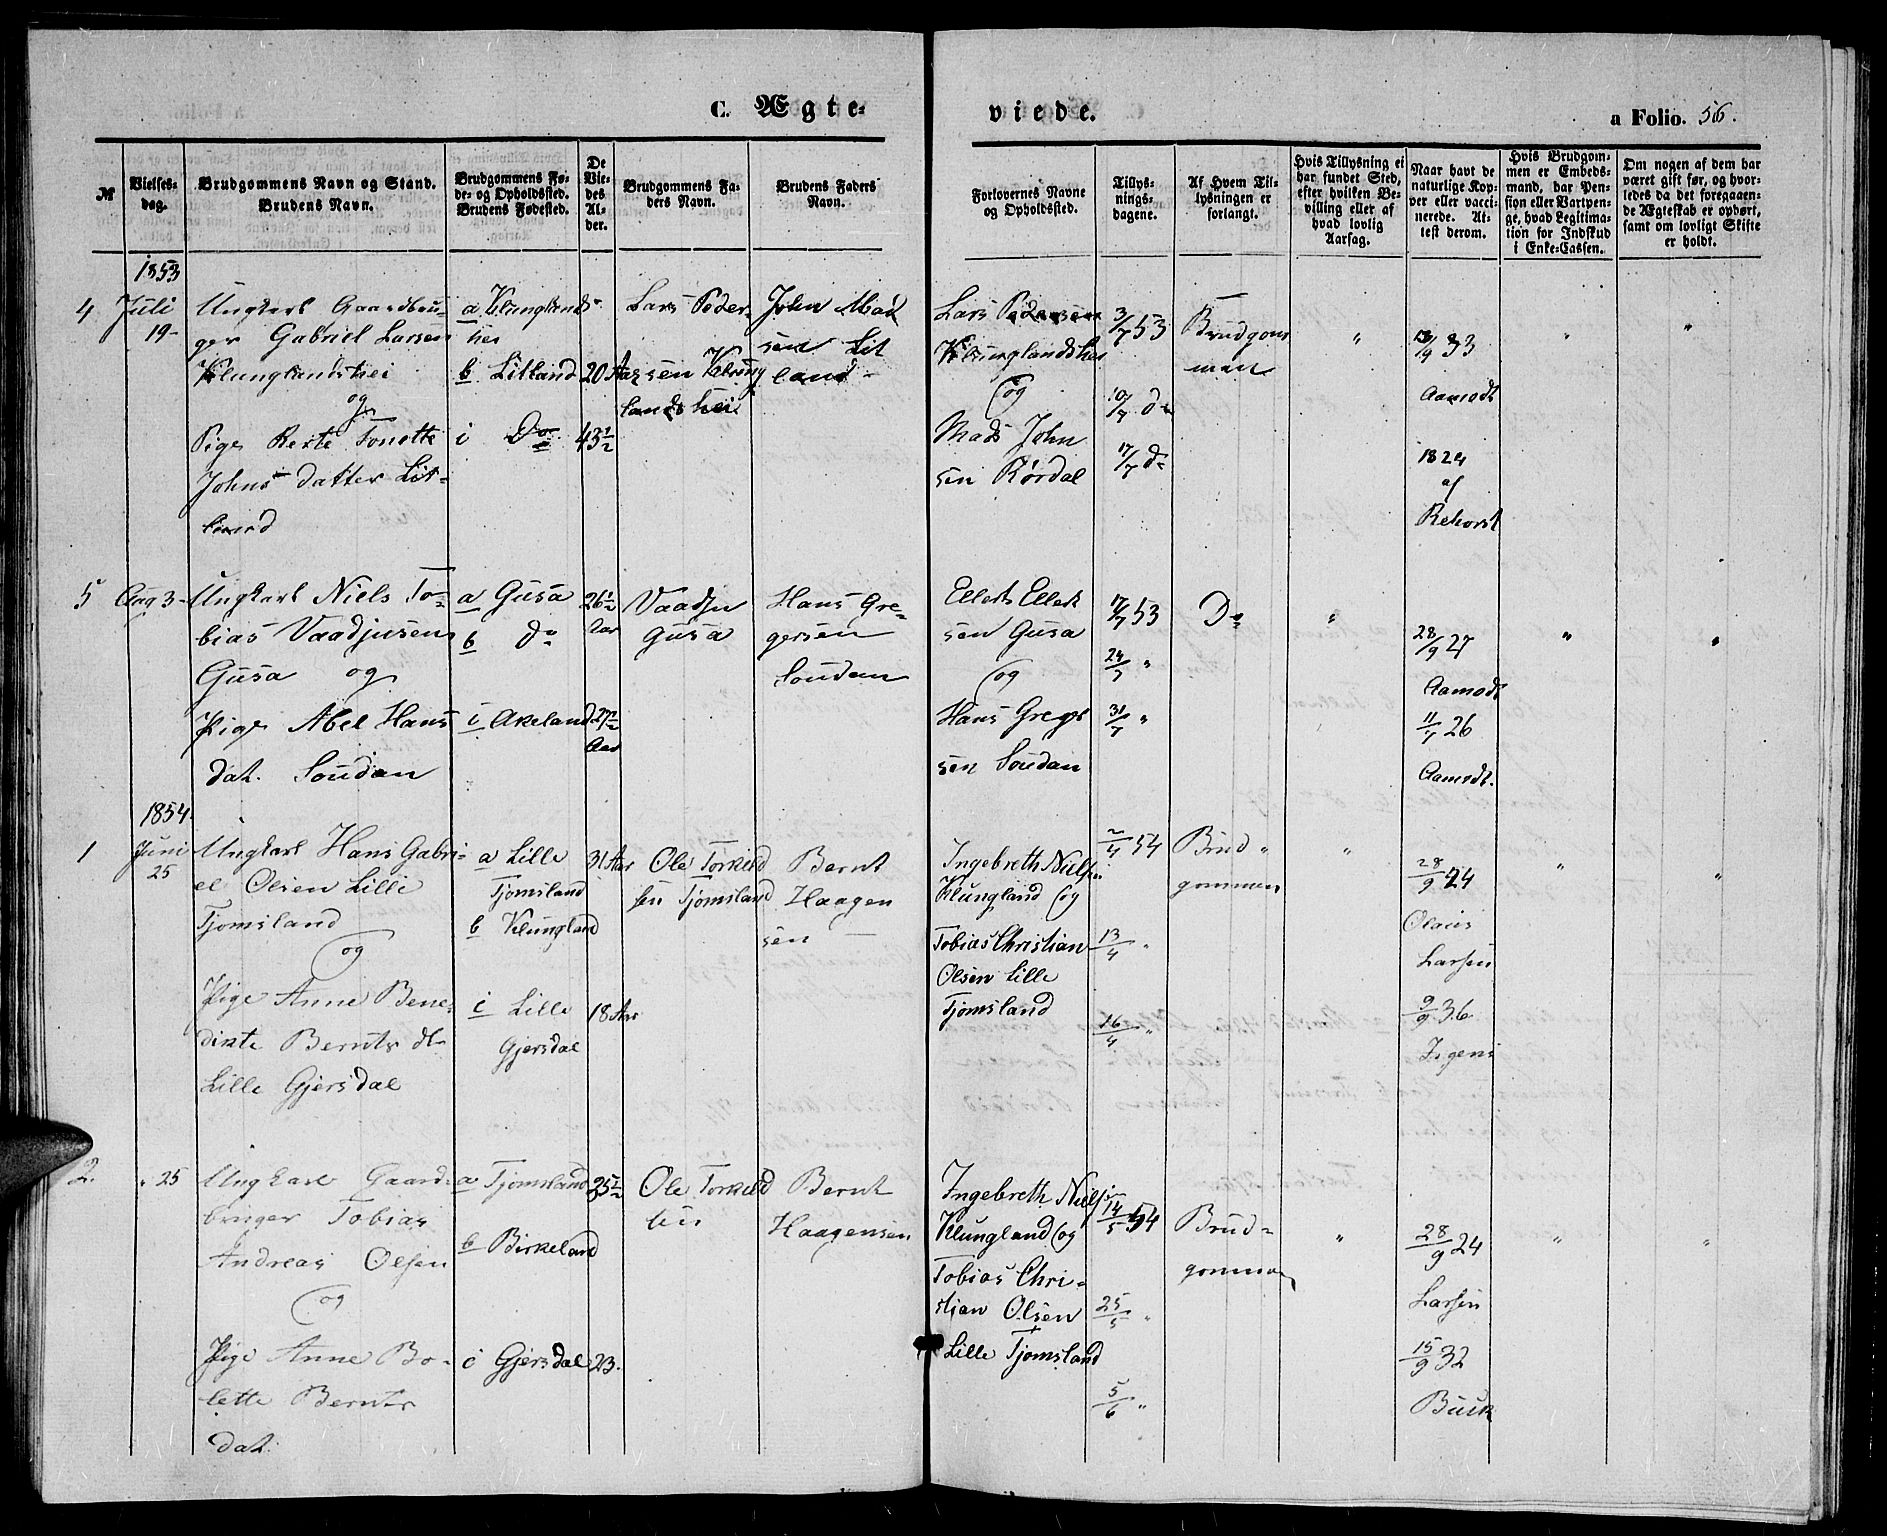 C. Ægte-
viede.
a Folio. 56.
№
Vielses-
dag.
Brudgommens Navn og Stand.
Brudens Navn.
Brudgommens Fø-
de- og Opholdssted.
Brudens Fødested.
De
Vie-
des
Al-
der.
Brudgommens Fa-
ders Navn.
Brudens Faders
Navn.
Forlovernes Navne
og Opholdssted.
Tillys-
nings-
dagene.
Af Hvem Til-
lysningen er
forlangt.
Hvis Tillysning ei
har fundet Sted,
efter hvilken Be-
villing eller af
hvad lovlig
Aarsag.
Naar havt de
naturlige Kop-
per eller vacci-
nerede. At-
test derom.
Hvis Brudgom-
men er Embeds-
mand, har Pen-
sion eller Vartpen-
ge, hvad Legitima-
tion for Indskud
i Enke-Cassen.
Om nogen af dem har
været gift før, og hvor-
ledes da det foregaaen-
de Ægteskab er ophørt,
samt om lovligt Skifte
er holdt.
1853
4
Juli
19-
Ungkarl Gaardbru-
ger Gabriel Larsen
Klunglandshei
og
Pige Berte Tonette
Johns datter Lit-
land
a Klunglands-
hei
b Litland
i Do
20 Aar
43½
Lars Peder-
sen Klung
landshei
John Mad
sen Lit
land
Lars Pedersen
Klunglandshei
og
Mads John
sen Rørdal
3/7 53
10/7 do
17/7 do
Brudgom
men
"
13/9 33
Aamodt
1824
af
Rehorst
"
"
5
Aug 3-
Ungkarl Niels To-
bias Vaadjusen
Gusa og
Pige Abel Hans
dat. Soudan
a Gusa
b do
i Akeland
26½
Aar
27½
Aar
Vaadju
Gusa
Hans Gre-
gersen
Soudan
Ellert Ellert
sen Gusa
og
Hans Greger
sen Soudan
17/7 53
24/7 "
31/7 "
Do
"
28/9 27
Aamodt
11/7 26
Aamodt.
"
"
1854
1
Juni
25
Ungkarl Hans Gabri-
el Olsen Lille
Tjomsland
og
Pige Anne Bene-
dikte Bernts dt
Lille Gjersdal
a Lille
Tjomsland
b Klungland
i Lille
Gjersdal
31 Aar
18 Aar
Ole Torkild
sen Tjomsland
Bernt
Haagen
sen
Ingebreth Nielsen
Klungland og
Tobias Christian
Olsen Lille
Tjomsland
2/4 54
13/4 "
16/4 "
Brud-
gommen
"
28/9 24
Olaus
Larsen
9/9 36
"
"
2.
" 25
Ungkarl Gaard-
bruger Tobias
Andreas Olsen
og
Pige Anne Bo-
lette Bernts
dat.
a Tjomsland
b Birkeland
i Gjersdal
25½
23.
Ole Torkild
sen
Bernt
Haagensen
Ingebreth Nielsen
Klungland og
Tobias Chri-
stian Olsen
Lille Tjomsland
14/5 54
25/5 "
5/6 "
Brud-
gommen
"
28/9 24
Larsen
15/9 32
Buck
"
"